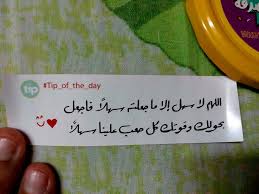 tip #Tip_of_the_day
اللهم لا سهل إلا ما جعلته سهلاً فاجعل
بحولك وقوتك كل صعب علينا سهلاً